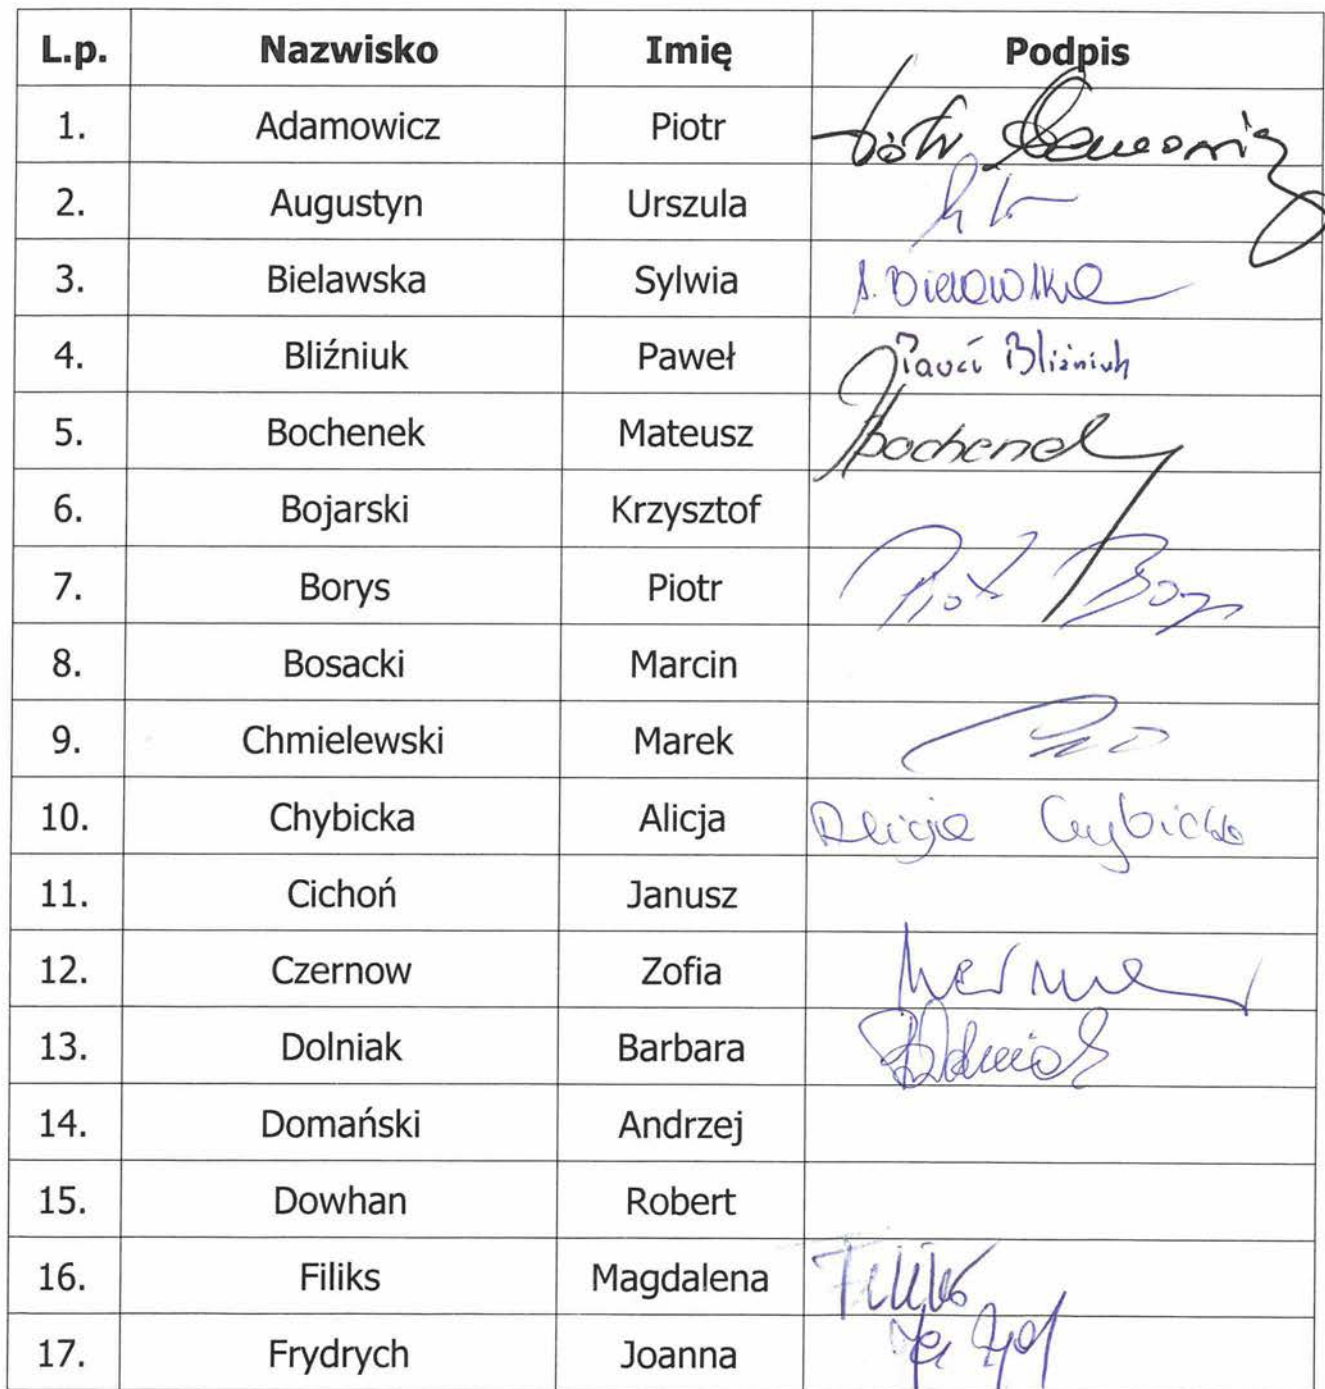 L.p. Nazwisko Imię Podpis
1. Adamowicz Piotr Piotr Adamowicz
2. Augustyn Urszula
3. Bielawska Sylwia S. Bielawska
4. Bliźniuk Paweł Paweł Bliźniuk
5. Bochenek Mateusz Bochenek
6. Bojarski Krzysztof
7. Borys Piotr Piotr Borys
8. Bosacki Marcin
9. Chmielewski Marek
10. Chybicka Alicja Alicja Chybicka
11. Cichoń Janusz
12. Czernow Zofia
13. Dolniak Barbara BDolniak
14. Domański Andrzej
15. Dowhan Robert
16. Filiks Magdalena Filiks
17. Frydrych Joanna